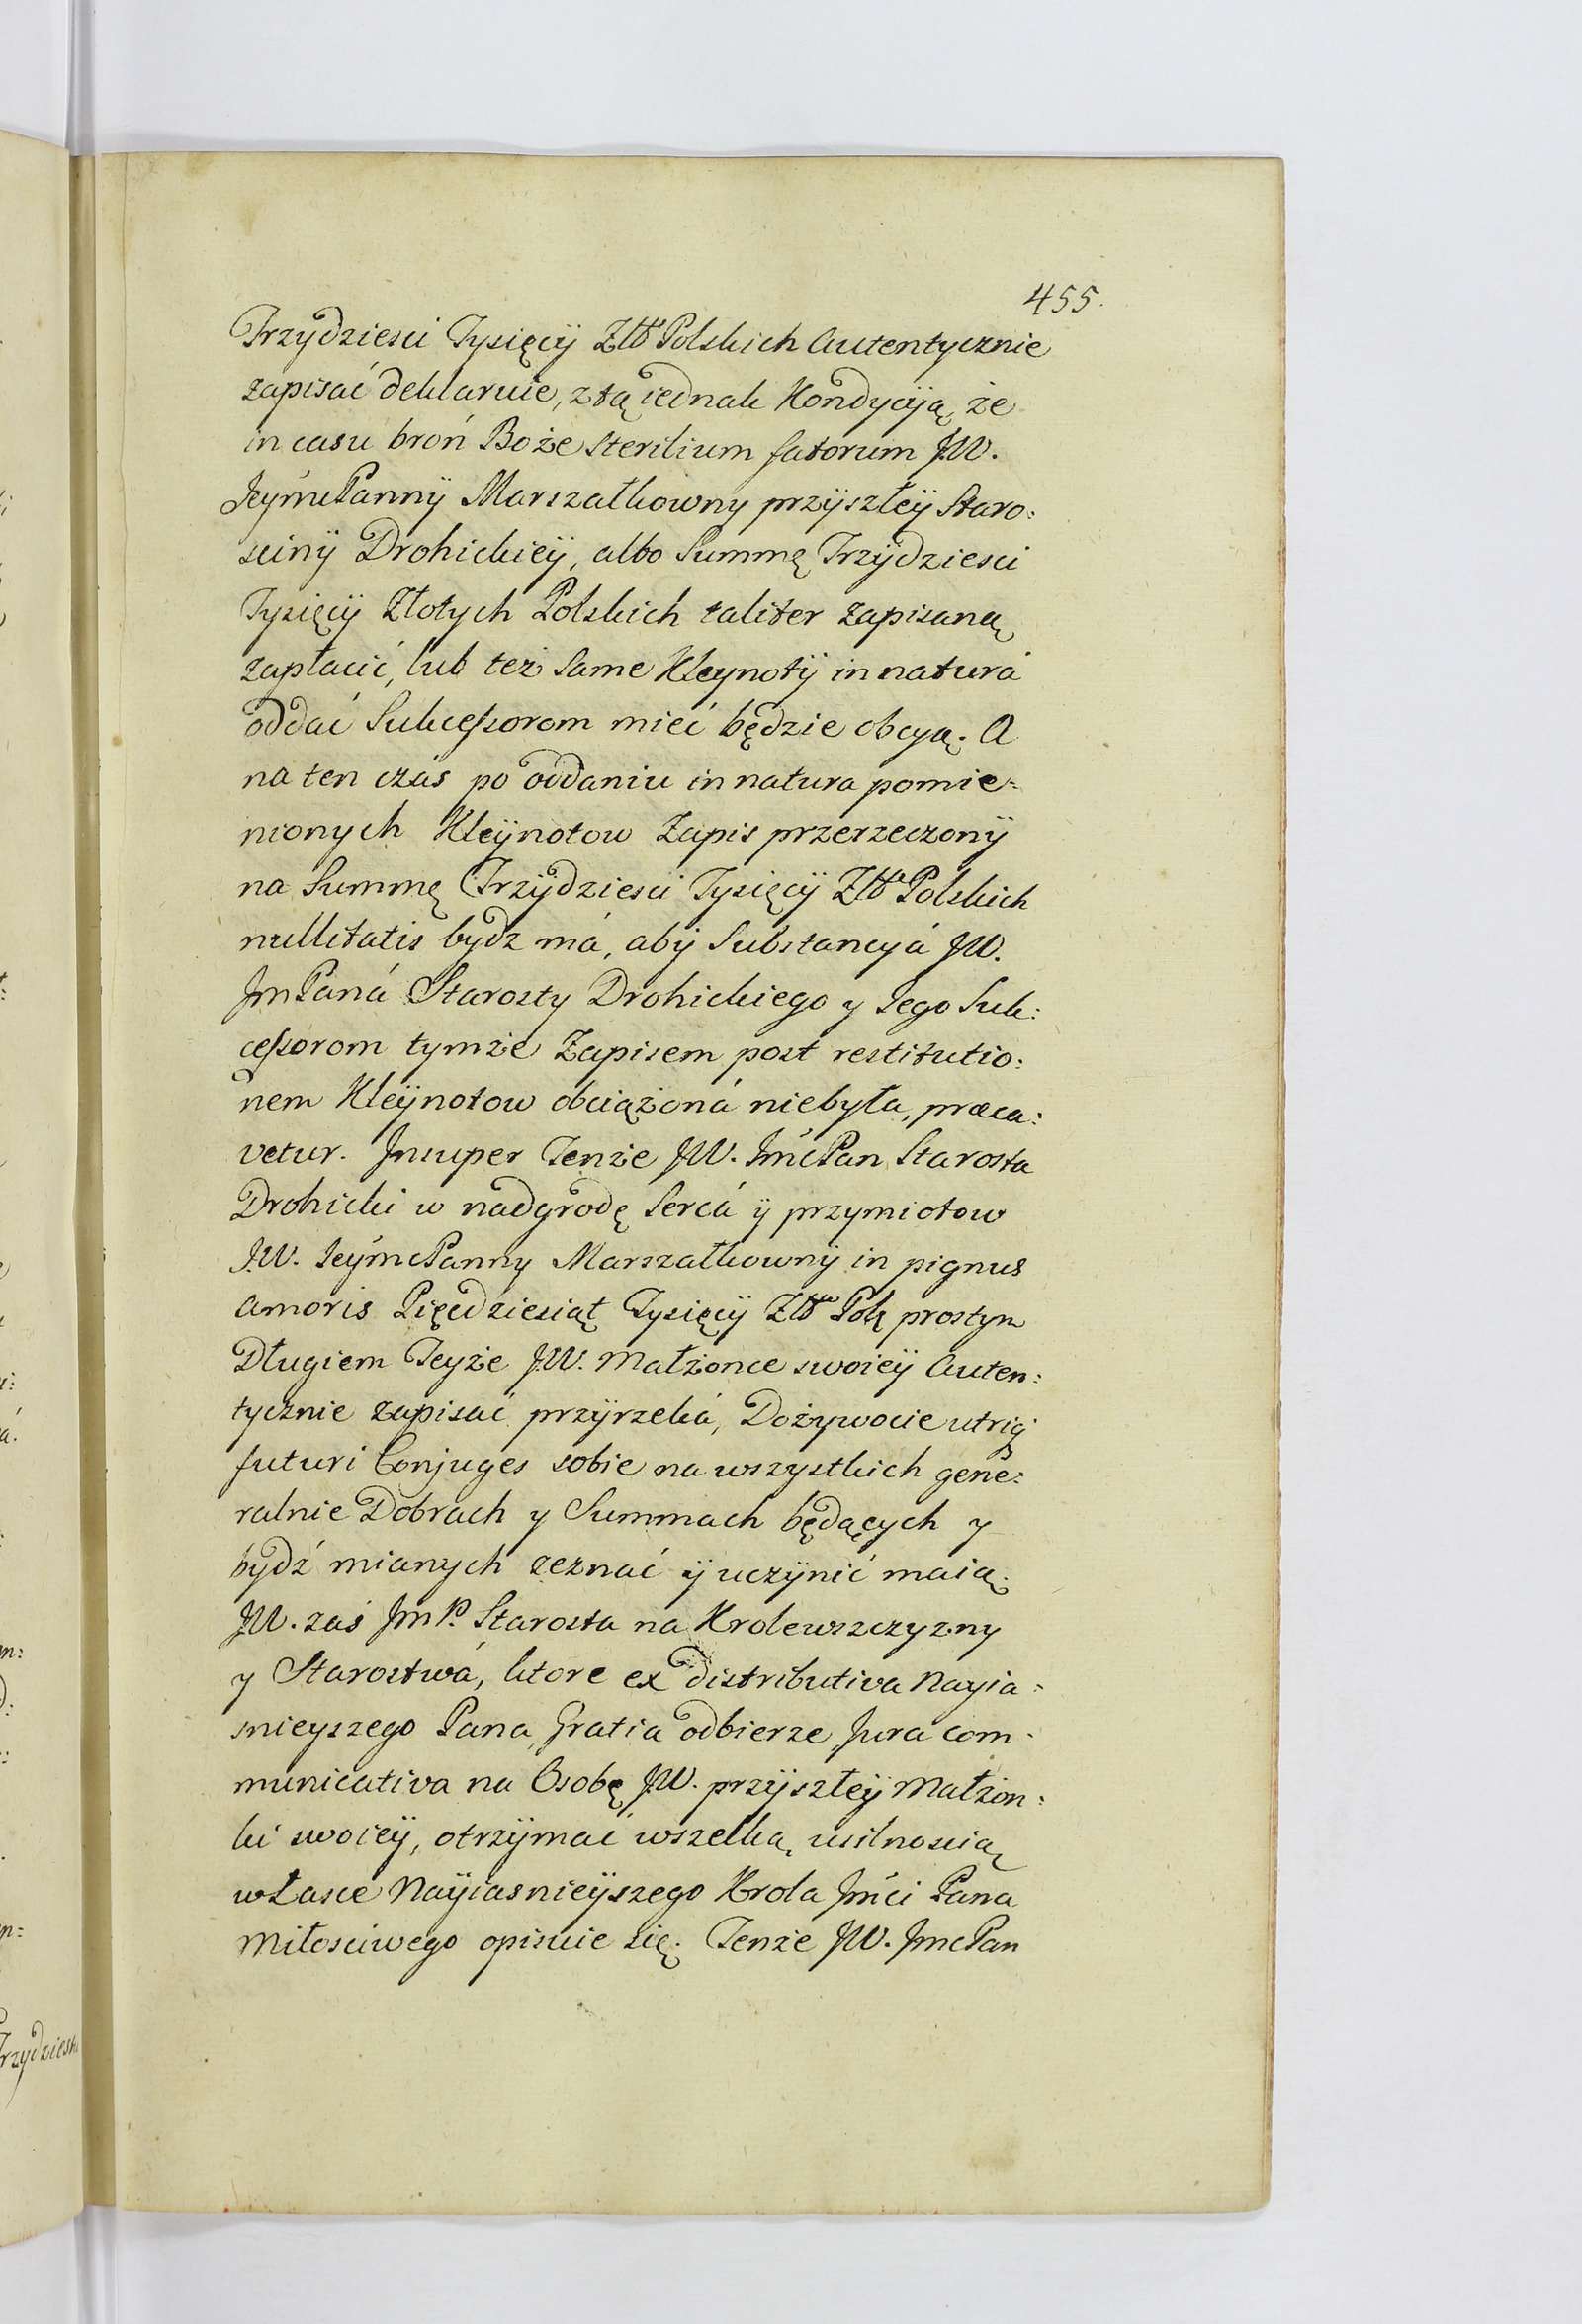 455.
Trzydziesci Tysięcÿ Złłt Polskich Autentycznie
zapisać deklaruie, z tą iednak Kondycÿją, że
in casu broń Boże sterilium fatorum J.W.
JeÿmcPannÿ Marszałkowny przÿszłeÿ Staro:
scinÿ Drohickieÿ, albo Summę Trzÿdziesci
Tysięcÿ Złotych Polskich taliter zapisaną
zapłacić, lub też same Kleynotÿ in naturá
oddać Sukceſsorom mieć będzie obcyą. A
na ten czás po oddaniu in natura pomie:
nionych Kleÿnotow Zapis przerzeczonÿ
na Summę Trzÿdziesci Tysięcÿ Złłt Polskich
nullitatis bydz má, abÿ Substancyá J.W.
JmPaná Starosty Drohickiego y Jego Suk:
ceſsorom tymże Zapisem post restitutio:
nem Kleÿnotow obciążoná niebyła, præca:
vetur. Insuper Tenże J.W. JmćPan Starosta
Drohicki w nadgrodę Sercá ÿ przymiotow
J.W. JeÿmcPanny Marszałkownÿ in pignus
amoris Pięcdziesiąt Tysięcÿ Złłt Pol. prostym
Długiem Teyże J.W. Małżonce swoieÿ Auten:
tycznie zapisać przÿrzeká, Dożywocie utriq
futuri Conjuges sobie na wszystkich gene:
ralnie Dobrach y Summach będących y
bydź mianych zeznać ÿ uczÿnić maią.
J.W. zaś Jm P. Starosta na Krolewszczyzny
y Starostwá, ktore ex distributiva Nayia:
snieyszego Pana Gratia odbierze Jura com:
municativa na Osobę J.W. przÿszłeÿ Małżon:
ki swoieÿ, otrzÿmać wszelką usilnoscią
w Łasce Naÿiasnieÿszego Krola Jmći Pana
Miłosciwego opisuie się. Tenże J.W. JmcPan
Trzydziesci